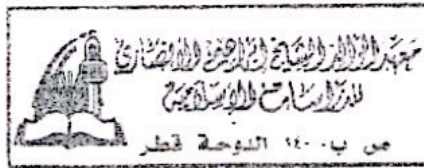 معهد الوالد الشيخ إبراهيم الأنصاري
للدراسات الإسلامية
ص ب ١٤٠٠ الدوحة قطر